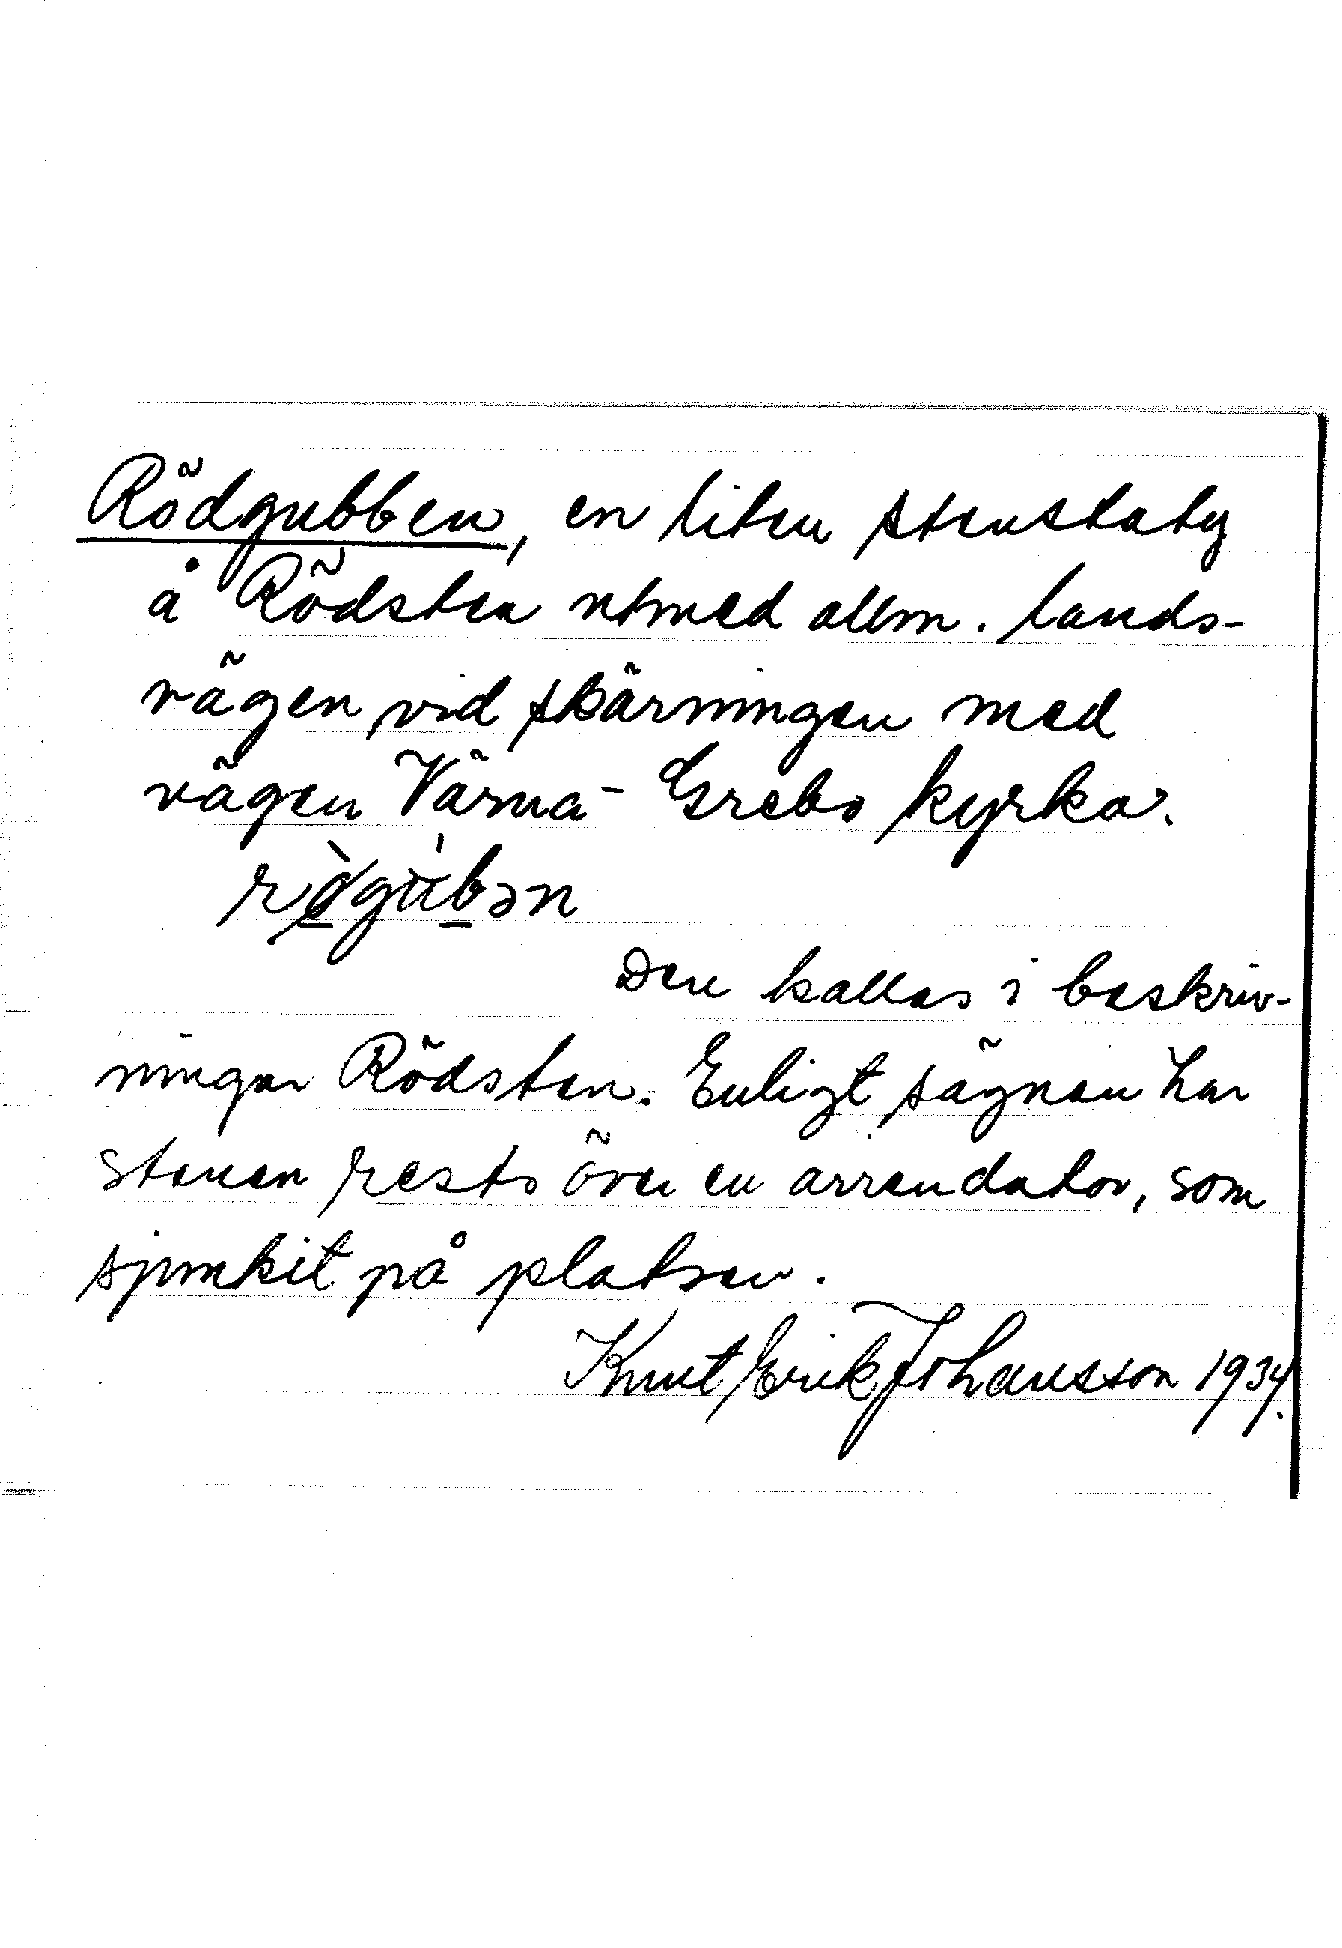 Rödgubben, en liten stenstaty
å Rödsten utmed allm. lands-
vägen vid skärningen med
vägen Värna - Grebo kyrka.
Den kallas i beskriv-
ningar Rödsten. Enligt sägnen har
stenen rests över en arrendator, som
sjunkit på platsen.
Knut Erik Johansson 1934.